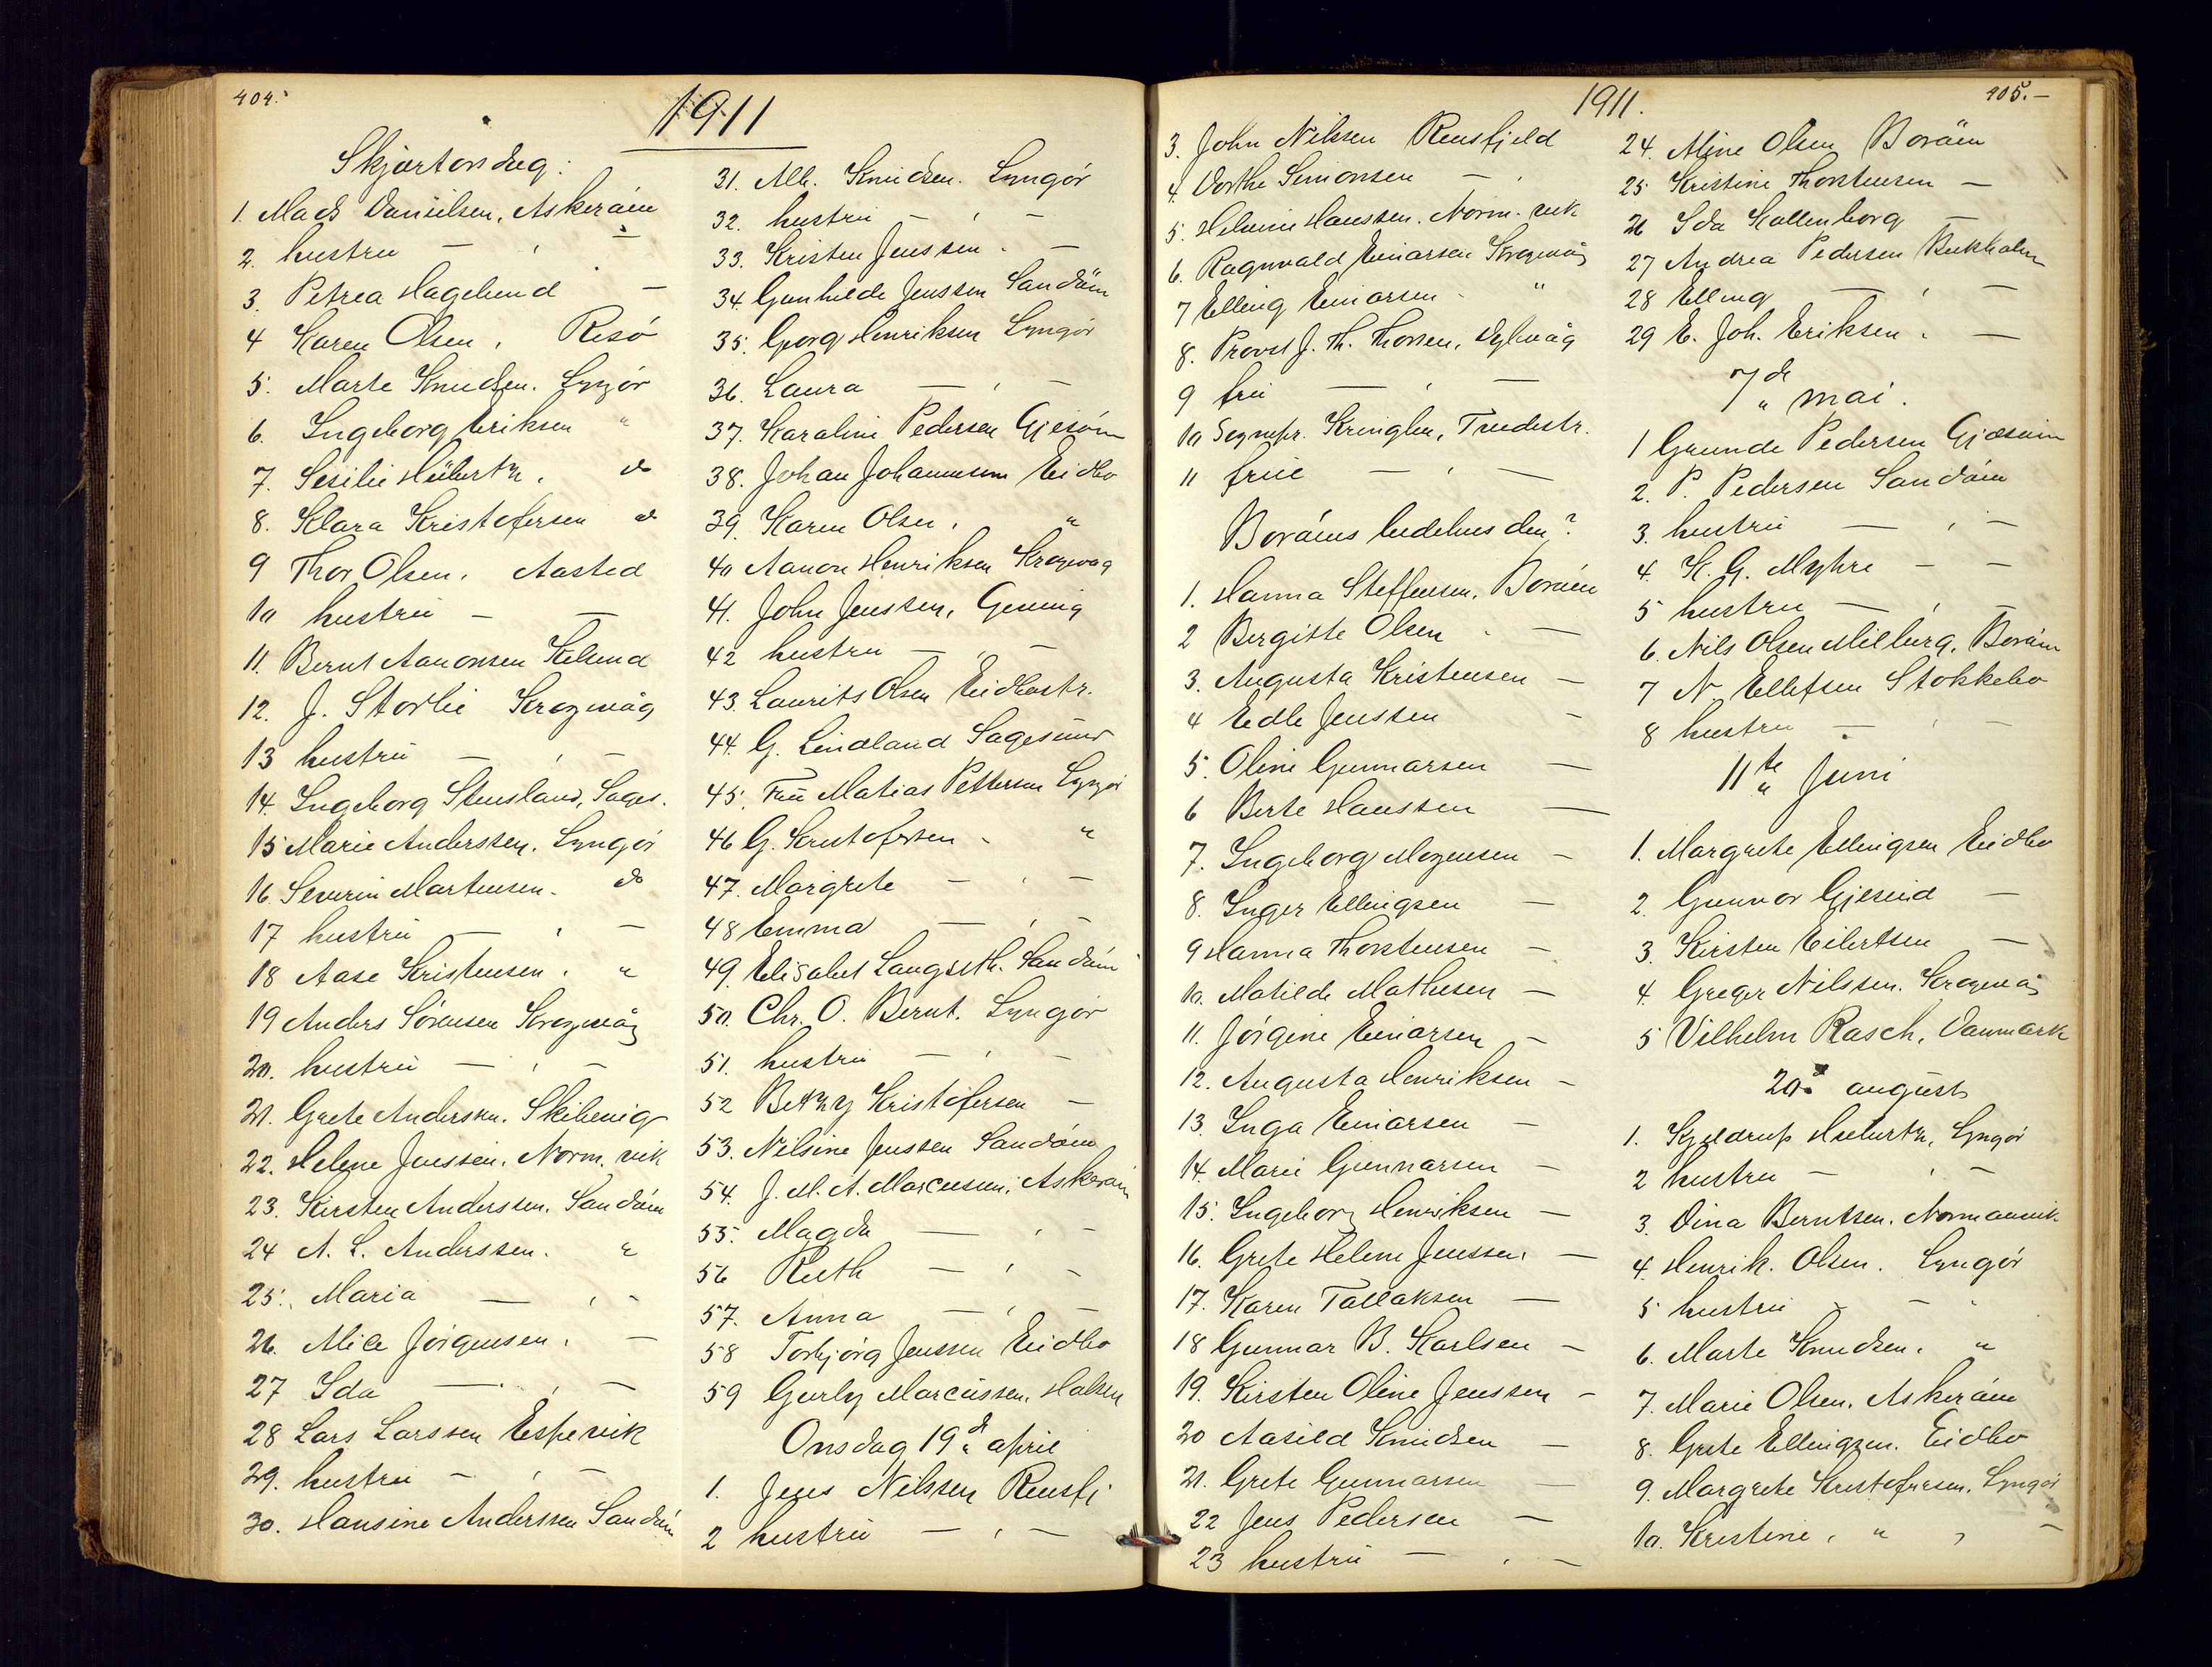 404.
1911
Skjærtorsdag:
1. Mads Danielsen, Askeröen
2. hustru — , —
3. Petrea Hagelund —
4 Karen Olsen, Risö
5. Marte Knudsen. Lyngör
6. Ingeborg Eriksen "
7. Sesilie Hübertz. do
8. Klara Kristofersen do
9 Thor Olsen. Aasted
10 hustru — —
11. Bernt Aanonsen
12. J. Storlie Krogvåg
13 hustru — , —
14. Ingeborg Stensland, Sages.
15 Marie Anderssen. Lyngör
16. Severin Martensen. do
17 hustru — , —
18 Aase Kristensen. "
19 Anders Sörensen Krogvåg
20. hustru — , —
21. Grete Anderssen. Skibevig
22. Helene Jenssen. Norm. vik
23. Kirsten Anderssen. Sandöen
24 A. L. Anderssen. "
25. Maria — , —
26. Alice Jörgensen. —
27 Ida — , —
28 Lars Larssen Espevik
29. hustru — , —
30. Hansine Anderssen Sandöen
31. Alb. Knudsen. Lyngör
32. hustru — , —
33. Kristen Jenssen. —
34. Gunhilde Jenssen Sandöen
35. Georg Henriksen Lyngör
36. Laura — , —
37. Karoline Pedersen Gjesöen
38. Johan Johannesen Eidbo
39. Karen Olsen. "
40 Aanon Henriksen Krogvåg
41. John Jenssen, Gjeving
42 hustru — , —
43. Laurits Olsen Eidbostr.
44. G. Lindland Sagesund
45. Fru Matias Pettersen Lyngör
46 G. Kristofersen. "
47. Margrete — , —
48 Emma — , —
49. Elisabet Langseth. Sandöen
50. Chr. O. Bernt. Lyngör
51. hustru — , —
52 Betzy Kristofersen —
53. Nilsine Jenssen Sandöen
54. J. M. A. Marcussen. Askeröen
55. Magda — , —
56 Ruth — , —
57. Anna — , —
58 Torbjörg Jenssen Eidbo
59 Gurly Marcussen.
Onsdag 19de april
1. Jens Nilssen Rensfj.
2 hustru — , —
1911.
405.—
3. John Nilssen Rensfjeld
4. Dorthe Simonsen — .
5. Helmine Hanssen. Norm. vik
6. Ragnvald Einarsen Krogvåg
7 Elling Einarsen. "
8. Provst J. Th. Thorsen, Dybvåg
9 fru — , —
10 Sognepr. Kringlen, Tvedestr.
11 frue — , —
Boröens bedehus den ?
1. Hanna Steffensen. Boröen
2 Bergitte Olsen. —
3. Augusta Kristensen —
4 Edle Jenssen —
5. Oline Gunnarsen —
6 Berte Hanssen —
7. Ingeborg Mogensen —
8. Inger Ellingsen —
9 Hanna Thorstensen —
10. Matilde Mathisen —
11. Jörgine Einarsen —
12. Augusta Henriksen —
13. Inga Einarsen —
14. Marie Gunnarsen —
15. Ingeborg Henriksen —
16. Grete Helene Jenssen. —
17. Karen Tallaksen —
18 Gunnar B. Karlsen —
19. Kirsten Oline Jenssen —
20 Aasild Knudsen —
21. Grete Gunnarsen —
22 Jens Pedersen —
23 hustru — , —
24. Aline Olsen Boröen
25 Kristine Thorstensen —
26 Ida Kallenborg —
27 Andrea Pedersen Bukholm
28 Elling — , —
29 E. Joh. Eriksen. —
7de mai.
1 Gunde Pedersen Gjesöen
2. P. Pedersen Sandöen
3. hustru — , —
4. K. G. Myhre — —
5 hustru — , —
6. Nils Olsen Milburg, Boröen
7 N. Ellefsen Stokkebo
8 hustru — , —
11te Juni
1. Margrete Ellingsen Eidbo
2. Gunvor Gjesund —
3. Kirsten Eilertsen —
4. Greger Nilssen. Krogvåg
5 Vilhelm Rasch, Danmark
20de august
1. Kjeldrup Hubertz, Lyngör
2 hustru — , —
3. Dina Berntsen. Normanvik
4. Henrik. Olsen. Lyngör
5 hustru — , —
6. Marte Knudsen. "
7. Marie Olsen. Askeröen
8. Grete Ellingsen. Eidbo
9. Margrete Kristofersen. Lyngör
10. Kristine, " , —